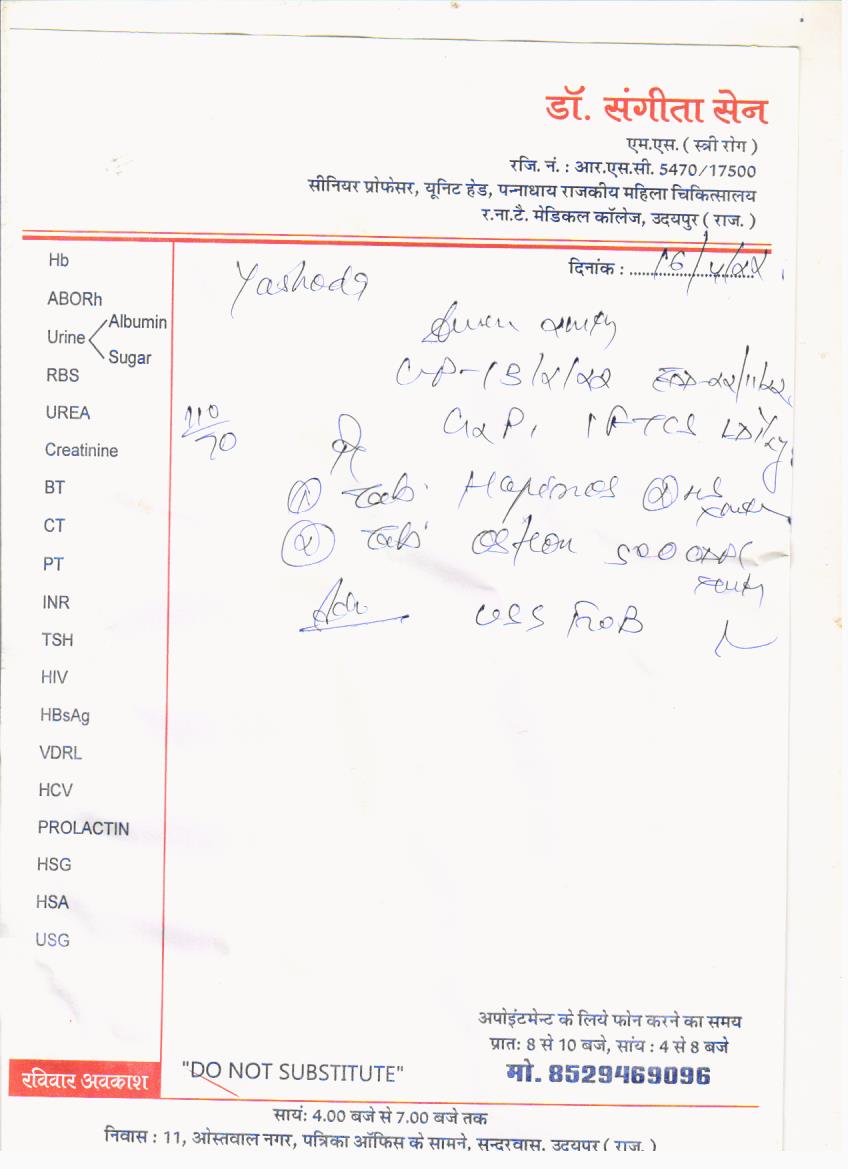 डॉ. संगीता सेन
एम.एस. ( स्त्री रोग )
रजि. नं. : आर.एस.सी. 5470/17500
सीनियर प्रोफेसर, यूनिट हेड, पन्नाधाय राजकीय महिला चिकित्सालय
र.ना.टै. मेडिकल कॉलेज, उदयपुर ( राज. )
दिनांक : 16/4/22
Yashoda
Hb
ABORh
Urine Albumin
Sugar
RBS
UREA
Creatinine
BT
CT
PT
INR
TSH
HIV
HBsAg
VDRL
HCV
PROLACTIN
HSG
HSA
USG
110/70
13/2/22 22/11/22
G2P1 1FTCS
① Tab.
② Tab. 500
Adv
अपोइंटमेन्ट के लिये फोन करने का समय
प्रात: 8 से 10 बजे, सांय : 4 से 8 बजे
मो. 8529469096
रविवार अवकाश
"DO NOT SUBSTITUTE"
सायं: 4.00 बजे से 7.00 बजे तक
निवास : 11, ओस्तवाल नगर, पत्रिका ऑफिस के सामने, सुन्दरवास, उदयपुर ( राज. )